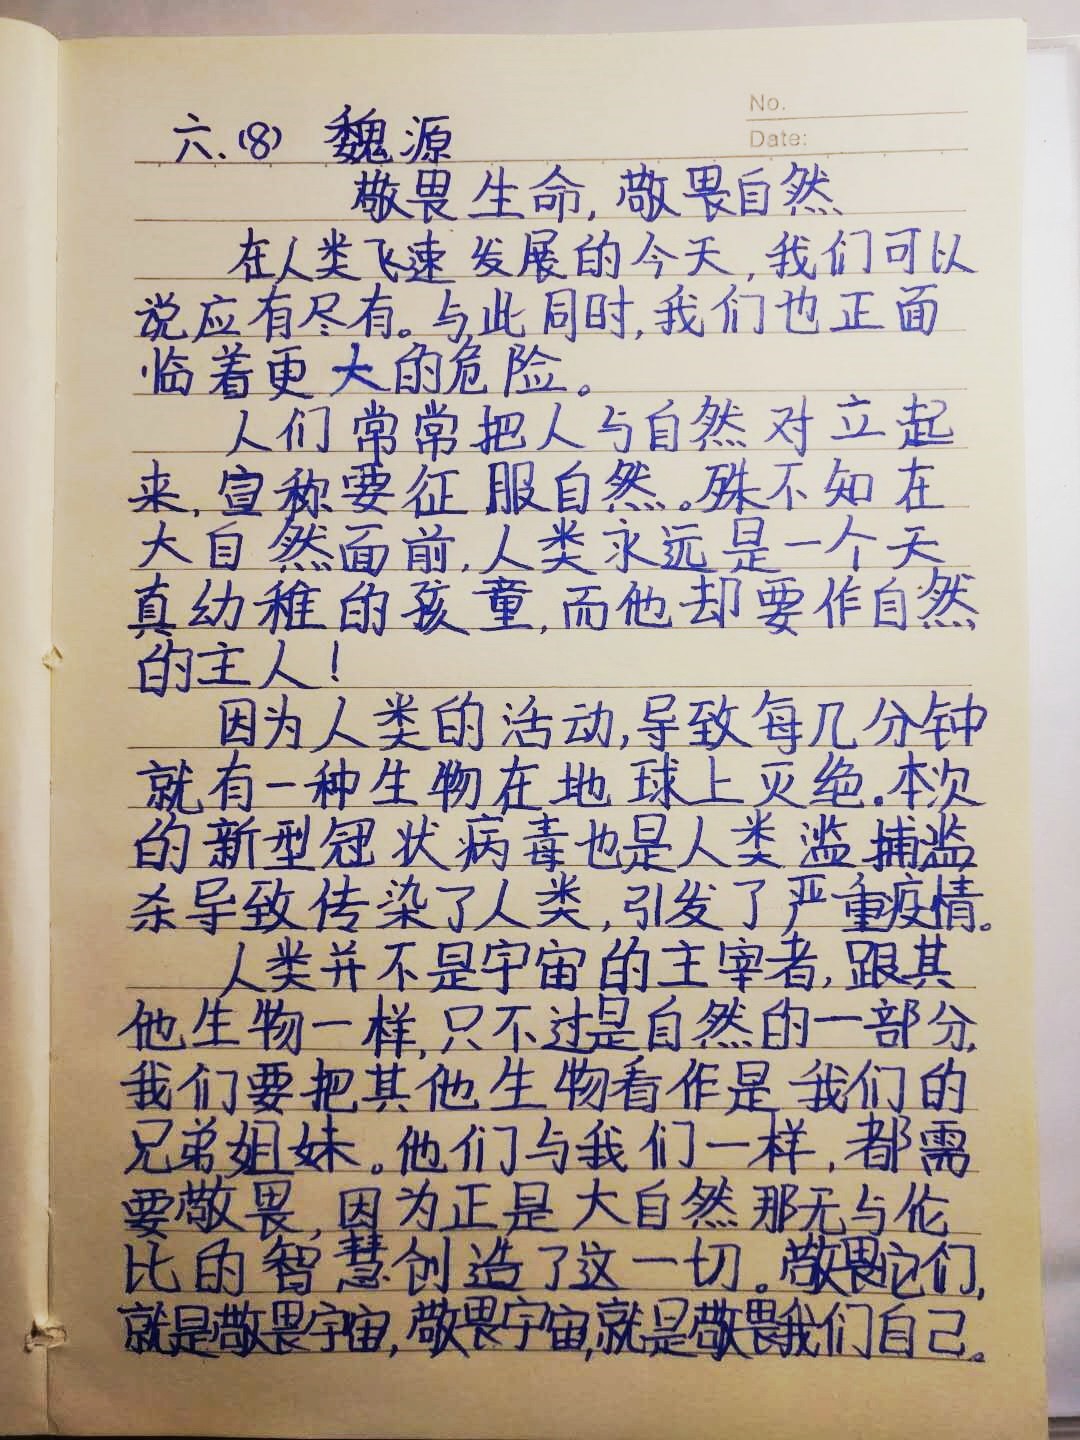 No.
Date:
六.(8) 魏源
敬畏生命,敬畏自然
在人类飞速发展的今天,我们可以
说应有尽有。与此同时,我们也正面
临着更大的危险。
人们常常把人与自然对立起
来,宣称要征服自然。殊不知在
大自然面前,人类永远是一个天
真幼稚的孩童,而他却要作自然
的主人!
因为人类的活动,导致每几分钟
就有一种生物在地球上灭绝。本次
的新型冠状病毒也是人类滥捕滥
杀导致传染了人类,引发了严重疫情。
人类并不是宇宙的主宰者,跟其
他生物一样,只不过是自然的一部分,
我们要把其他生物看作是我们的
兄弟姐妹。他们与我们一样,都需
要敬畏,因为正是大自然那无与伦
比的智慧创造了这一切。敬畏它们,
就是敬畏宇宙,敬畏宇宙,就是敬畏我们自己。